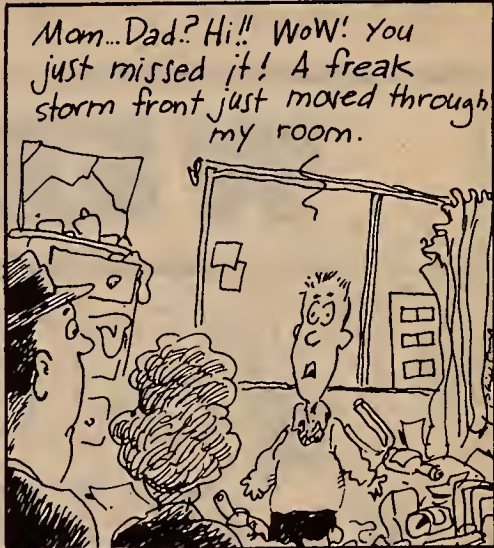 Mom...Dad? Hi!! WoW! You
just missed it! A freak
storm front just moved through
my room.